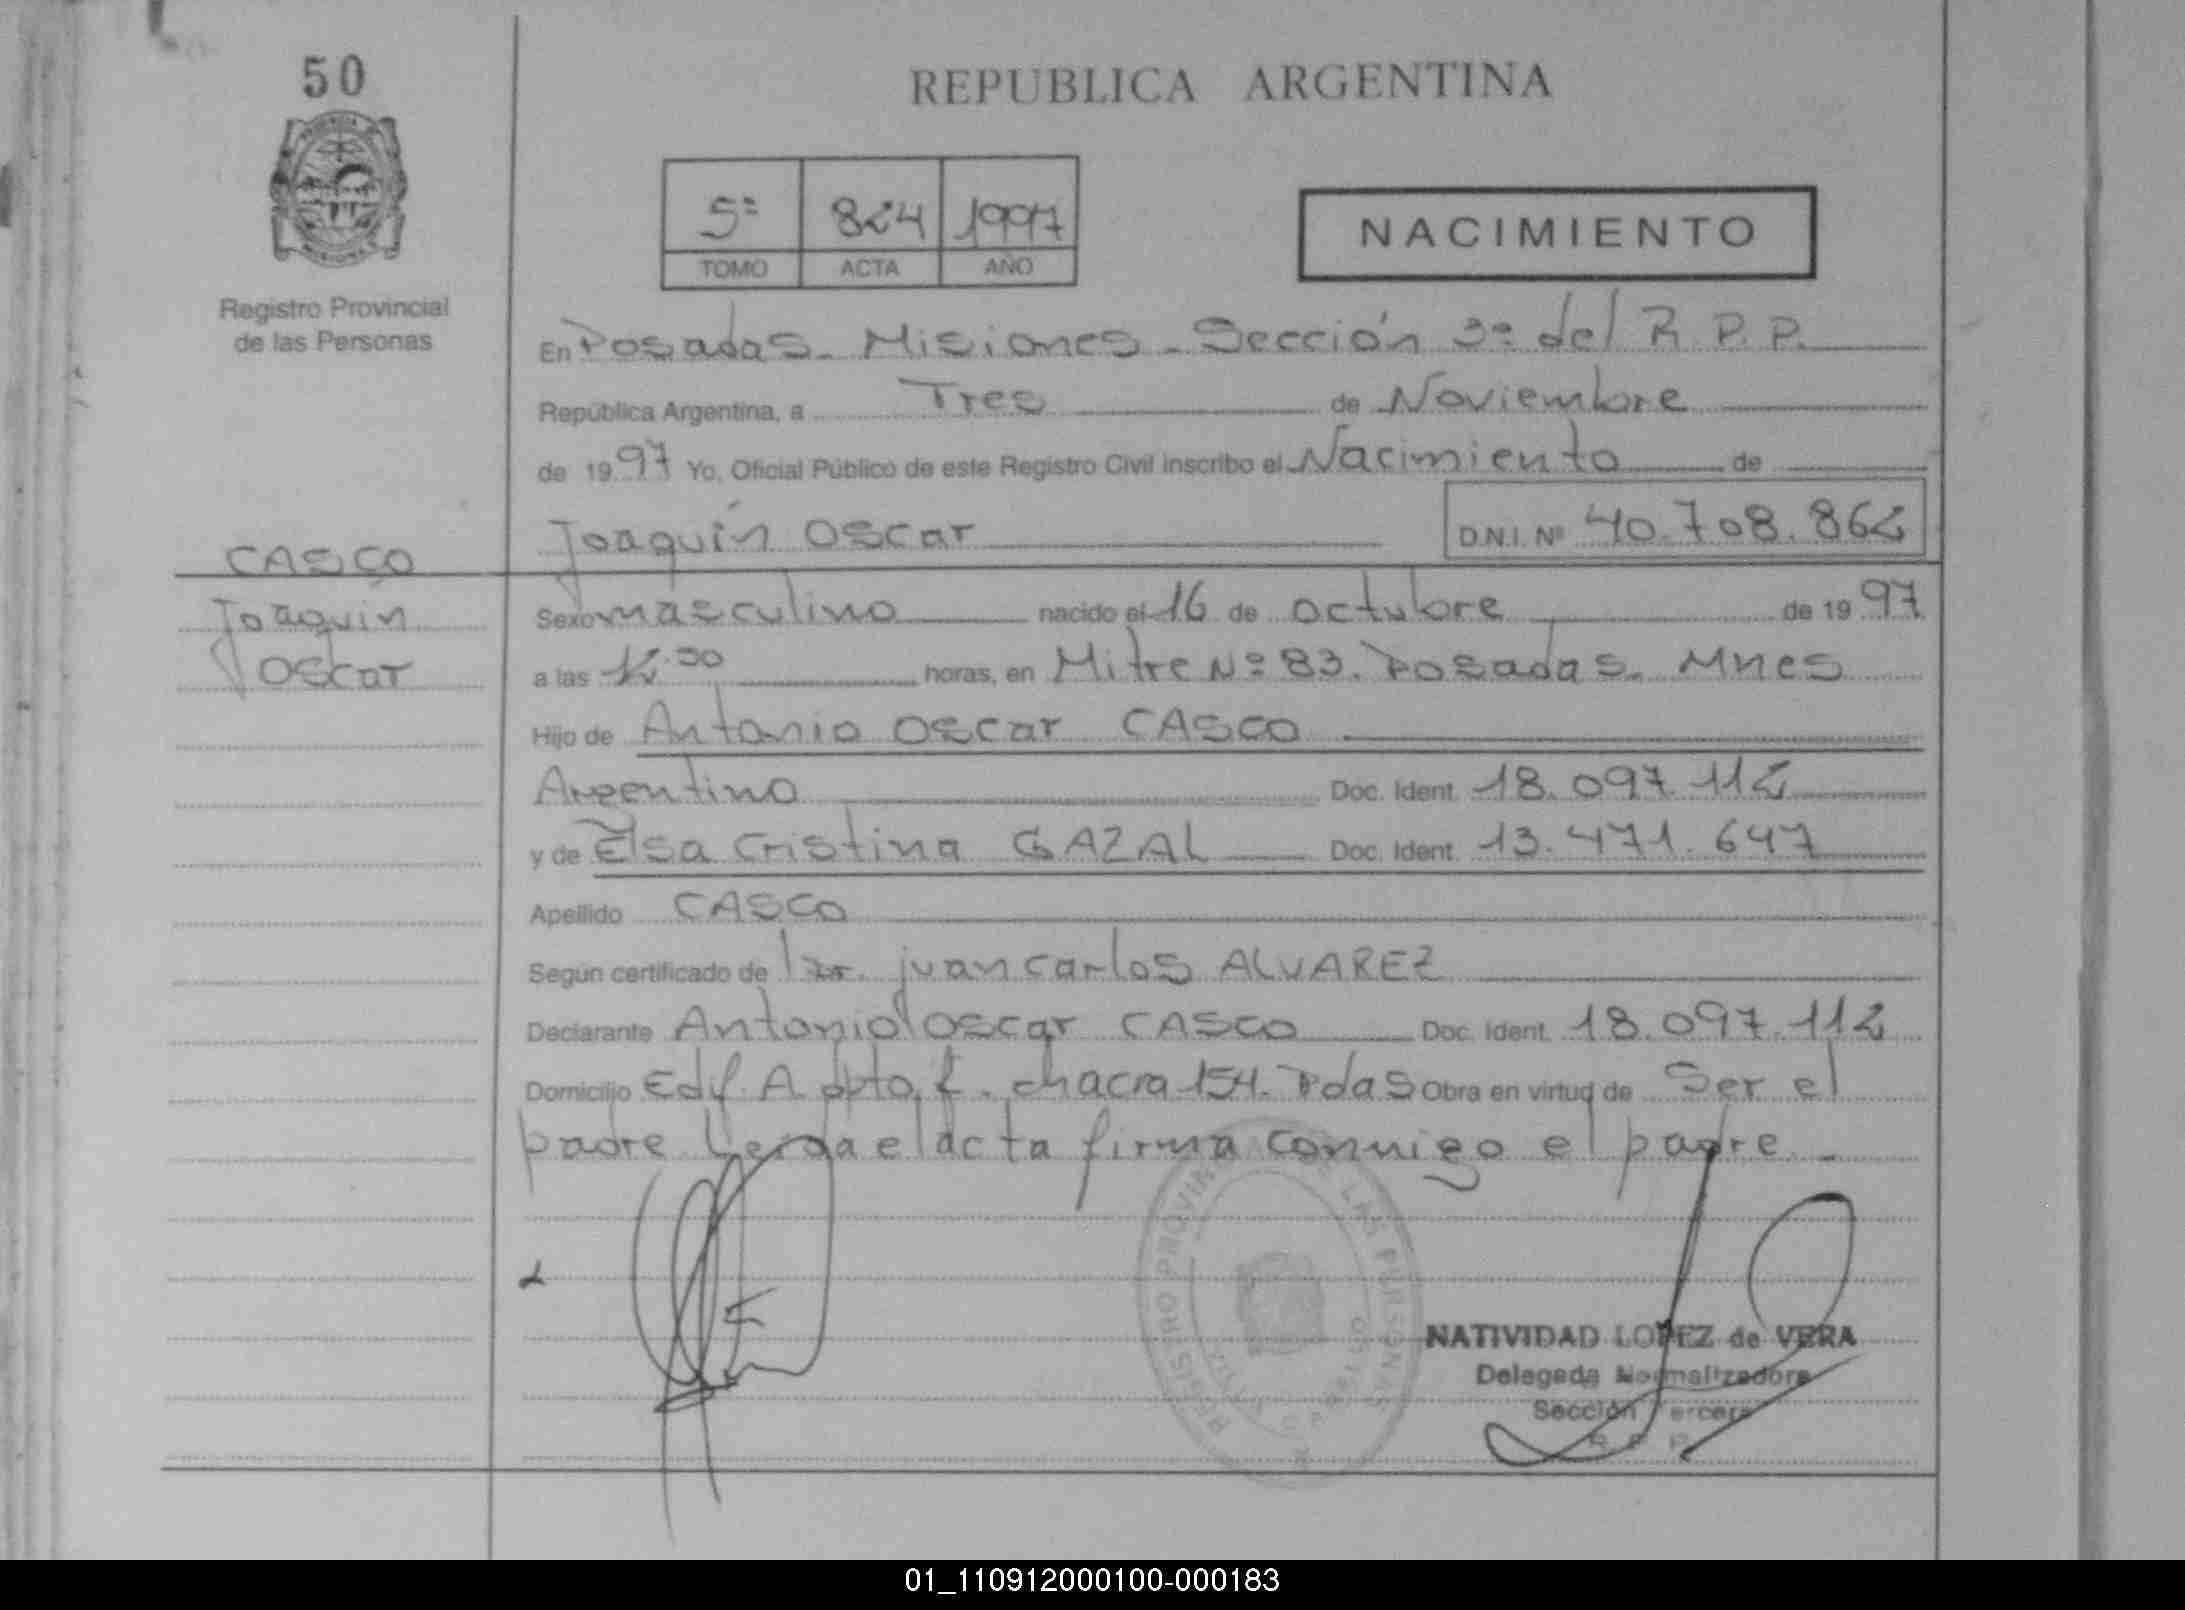 50
REPUBLICA ARGENTINA
5º 824 1997
TOMO ACTA AÑO
NACIMIENTO
Registro Provincial
de las Personas
En Posadas. Misiones. Sección 3º del R.P.P.
República Argentina, a Tres de Noviembre
de 1997 Yo, Oficial Público de este Registro Civil inscribo el Nacimiento de
CASCO Joaquín Oscar D.N.I. Nº 40.708.862
Joaquín Sexo masculino nacido el 16 de octubre de 1997
Oscar a las horas, en Mitre Nº 83. Posadas. Mnes
Hijo de Antonio Oscar CASCO
Argentino Doc. Ident. 18.097.112
y de Elsa Cristina GAZAL Doc. Ident. 13.471.647
Apellido CASCO
Según certificado de Dr. Juan Carlos ALVAREZ
Declarante Antonio Oscar CASCO Doc. Ident. 18.097.112
Domicilio Edif. A dpto. chacra 154. Pdas Obra en virtud de Ser el
padre Leída el acta firma conmigo el padre.
REGISTRO PROVINCIAL DE LAS PERSONAS
NATIVIDAD LOPEZ de VERA
Delegada Normalizadora
Sección Tercera
R. P. P.
01_110912000100-000183